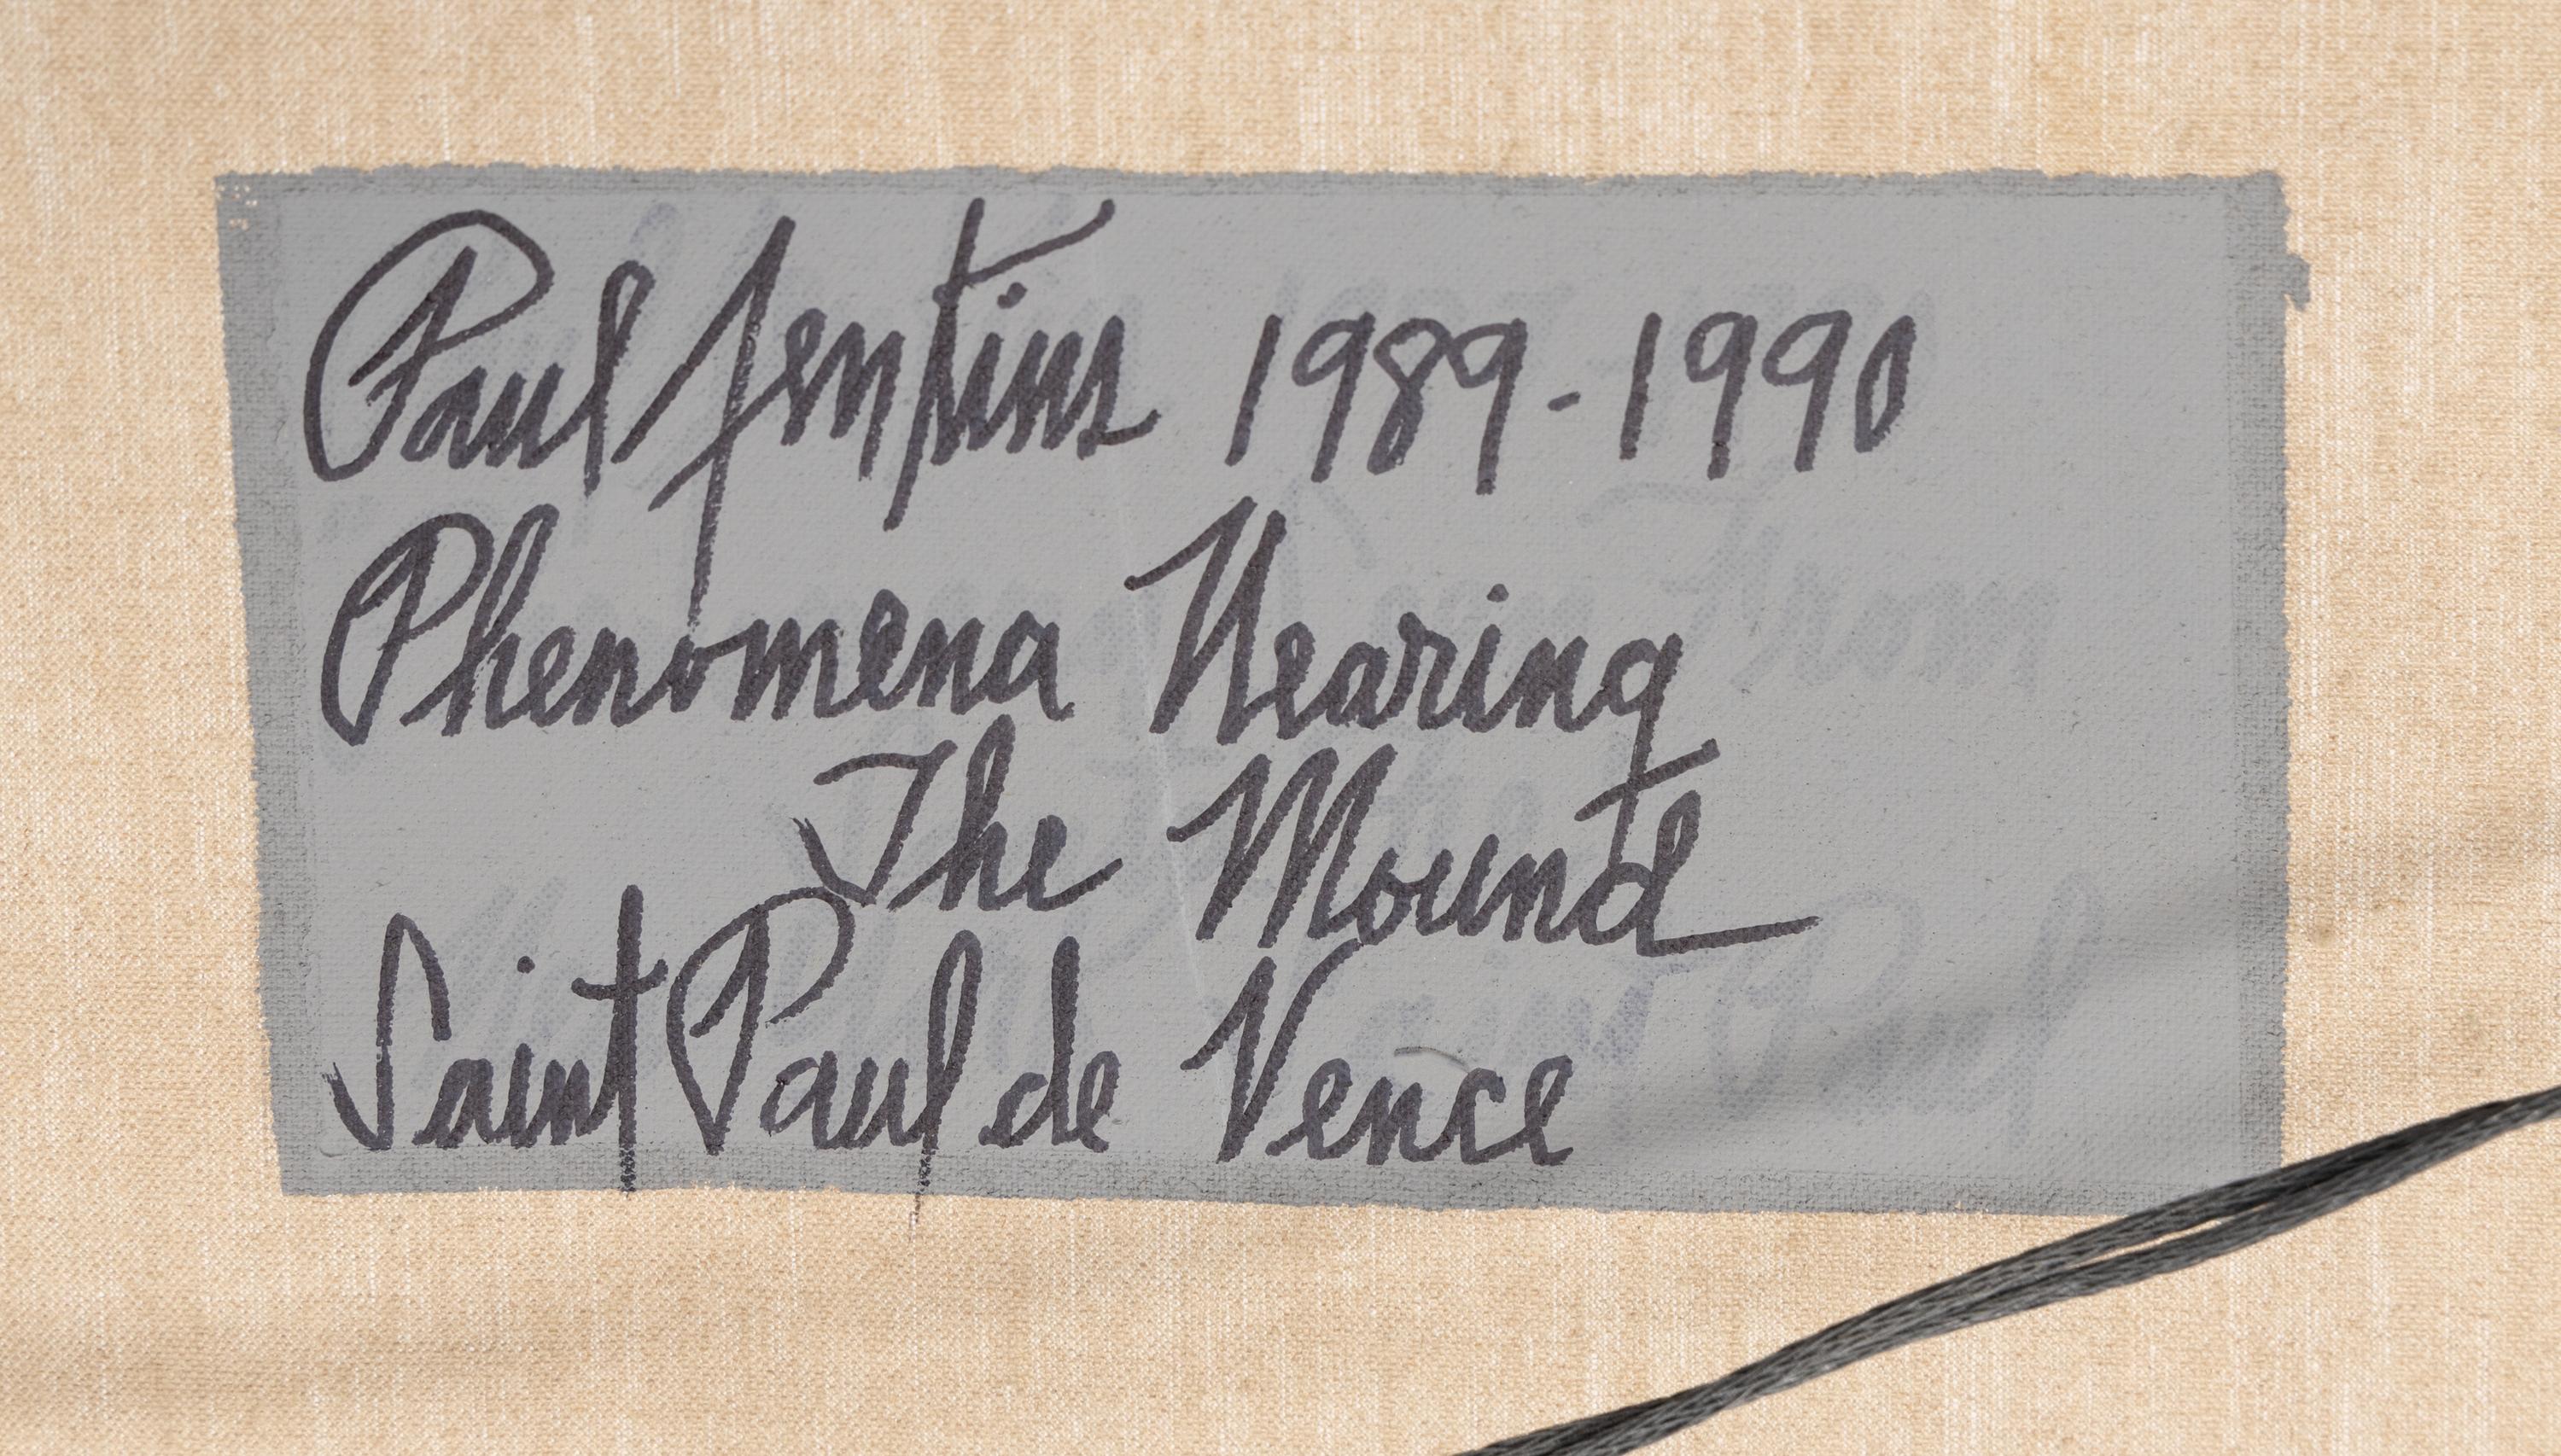 Paul Jenkins 1989-1990
Phenomena Nearing
The Mound
Saint Paul de Vence